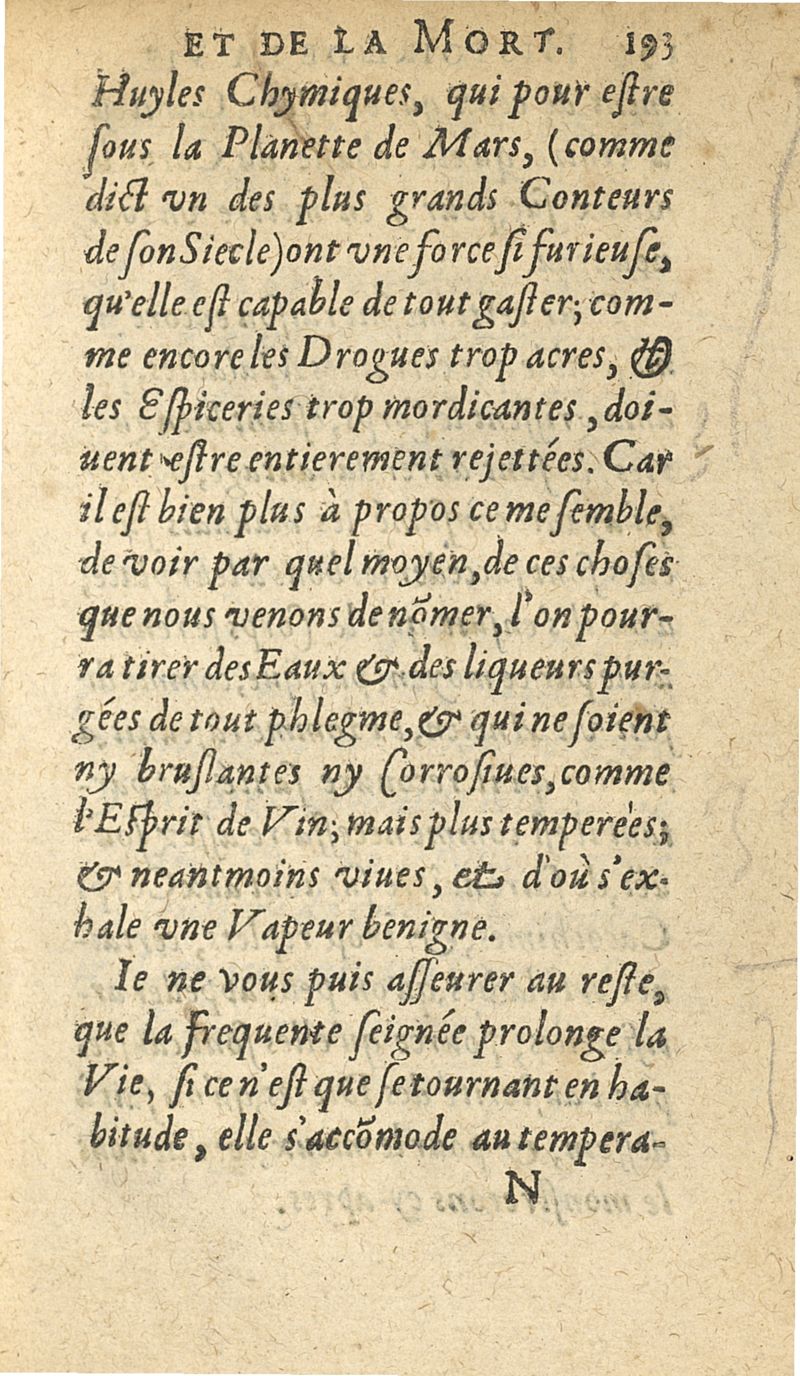 ET DE LA MORT. 193
Huyles Chymiques, qui pour eſtre
ſous la Planette de Mars, (comme
dict vn des plus grands Conteurs
de ſon Siecle) ont vne force ſi furieuſe,
qu'elle eſt capable de tout gaſter; com-
me encore les Drogues trop acres, &
les Eſpiceries trop mordicantes, doi-
uent eſtre entierement rejettées. Car
il eſt bien plus à propos ce me ſemble,
de voir par quel moyen, de ces choſes
que nous venons de nõmer, l'on pour-
ra tirer des Eaux & des liqueurs pur-
gées de tout phlegme, & qui ne ſoient
ny bruſlantes ny Corroſiues, comme
l'Eſprit de Vin; mais plus temperées;
& neantmoins viues, et d'où s'ex-
hale vne Vapeur benigne.
Ie ne vous puis aſſeurer au reſte,
que la frequente ſeignée prolonge la
Vie, ſi ce n'eſt que ſe tournant en ha-
bitude, elle s'accõmode au tempera-
N